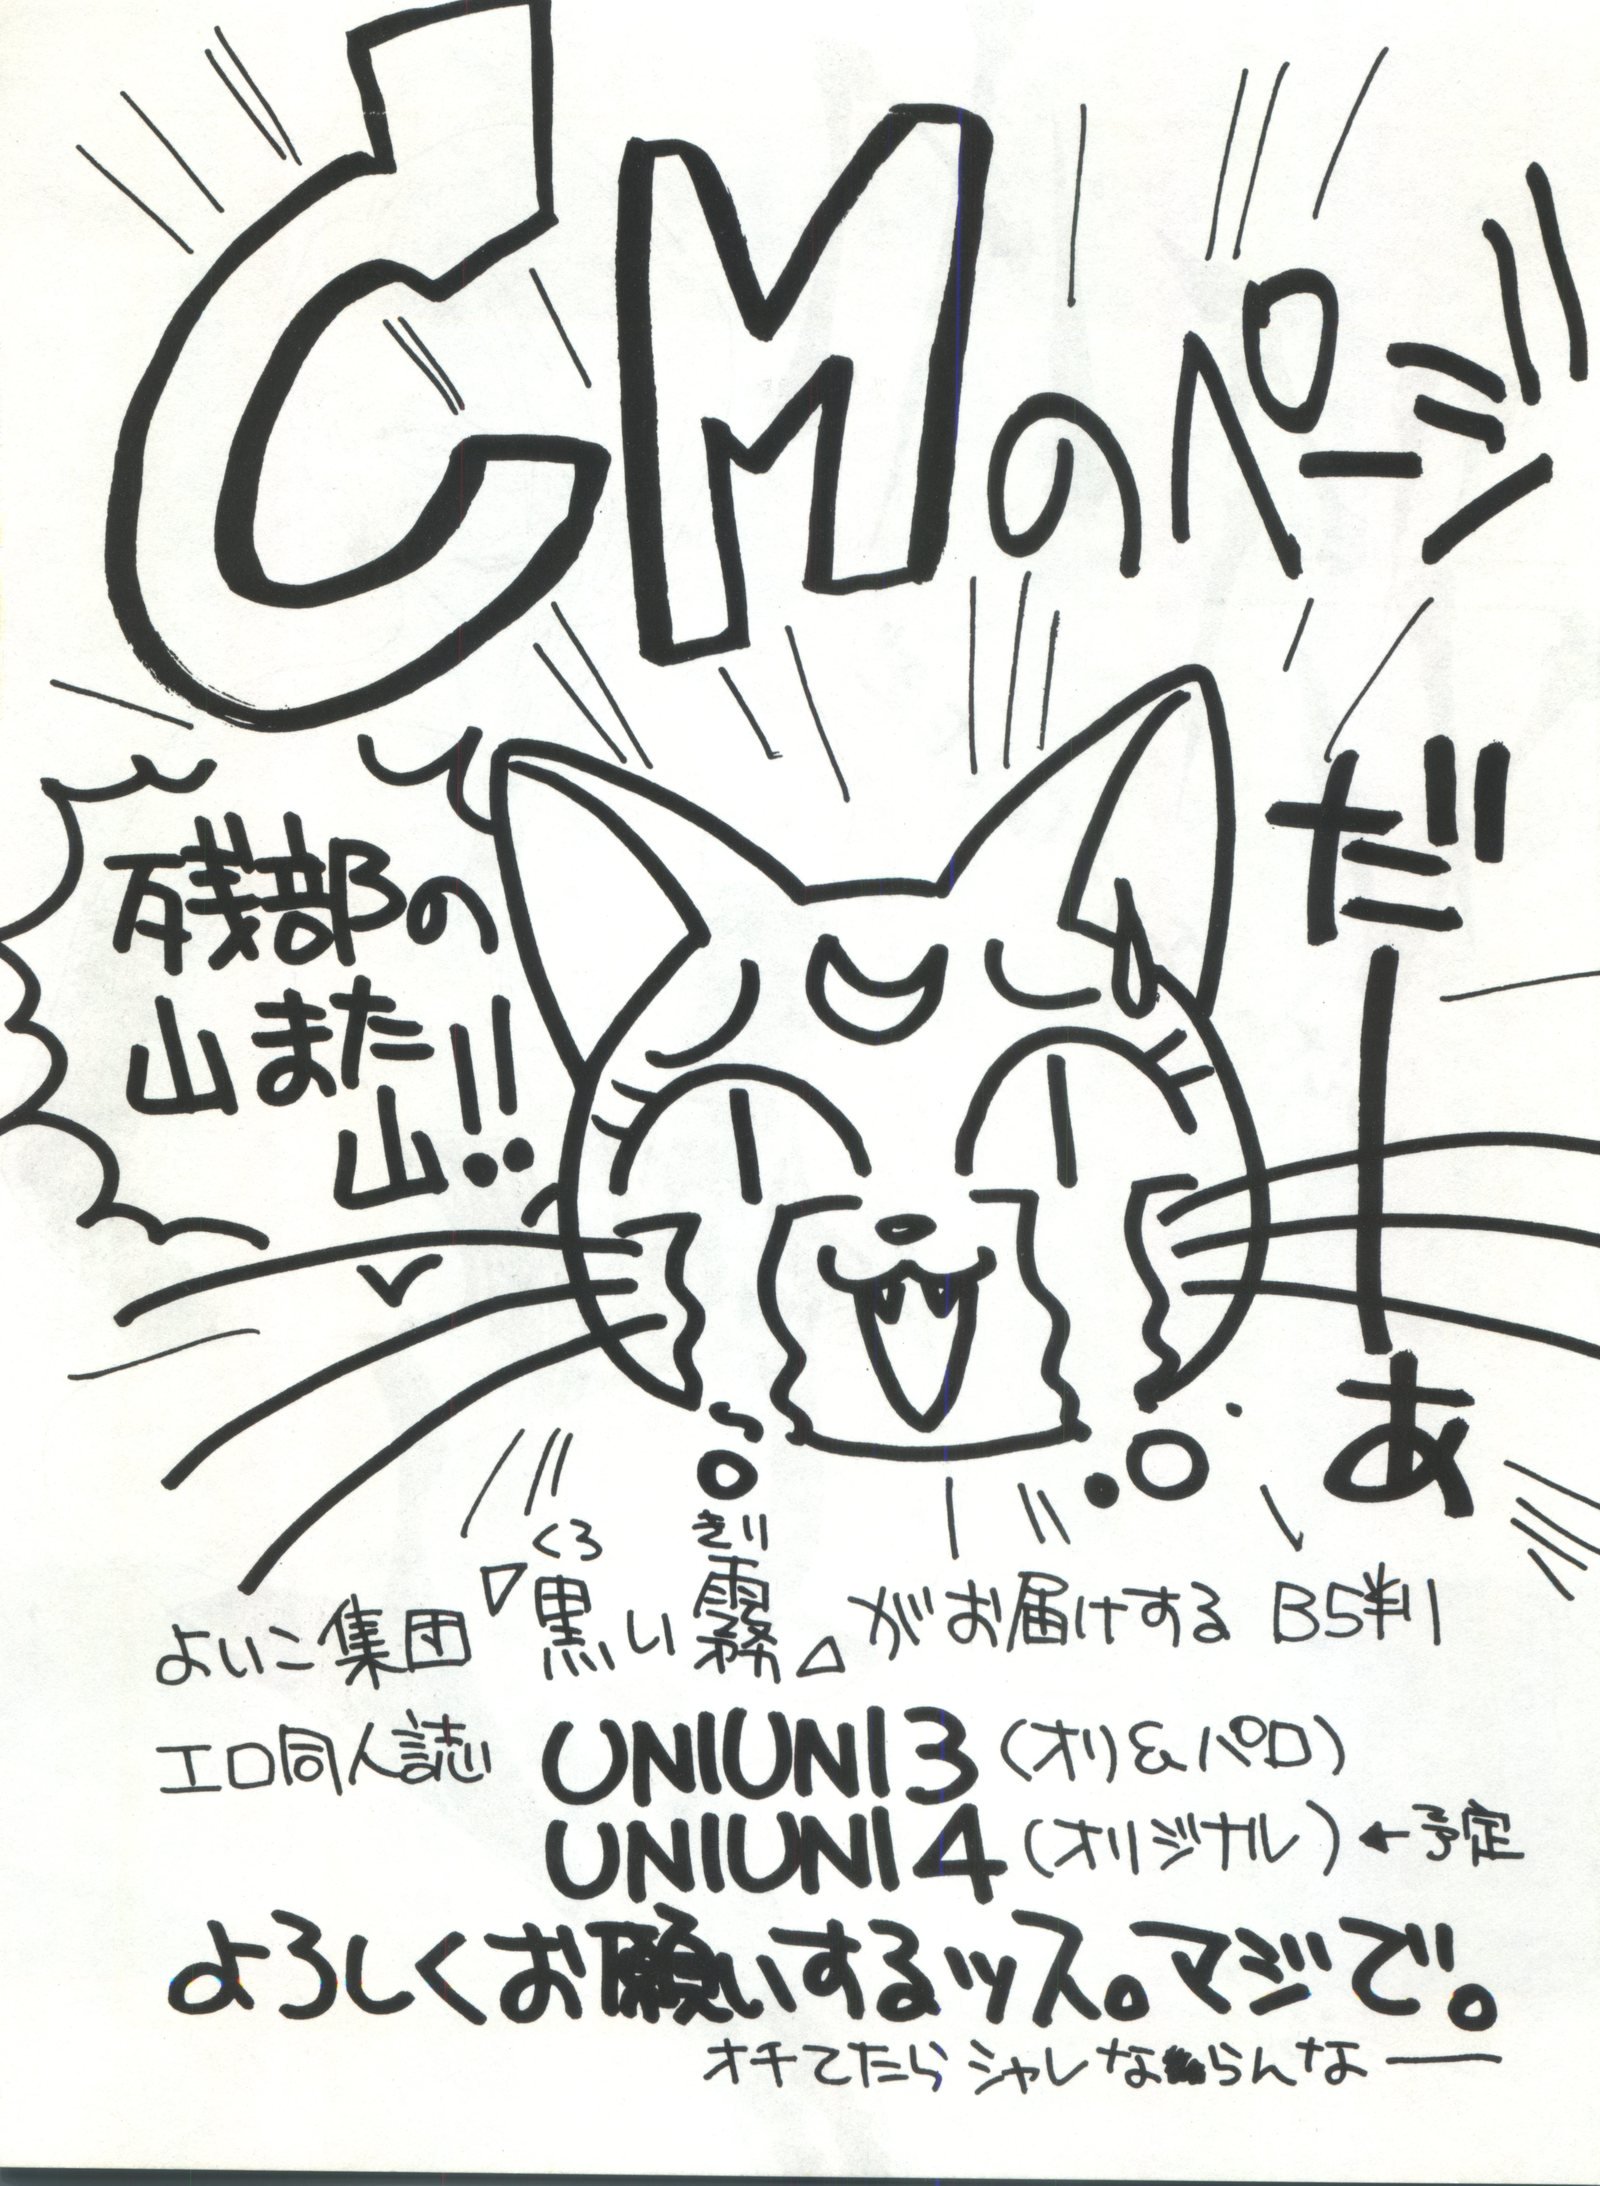 CMのページ
だーあ
残部の
山また
山!!
よいこ集団『黒い霧』がお届けするB5判
くろ
きり
エロ同人誌 UNIUNI3(オリ&パロ)
UNIUNI4(オリジナル)←予定
よろしくお願いするッス。マジで。
オチてたらシャレならんなー